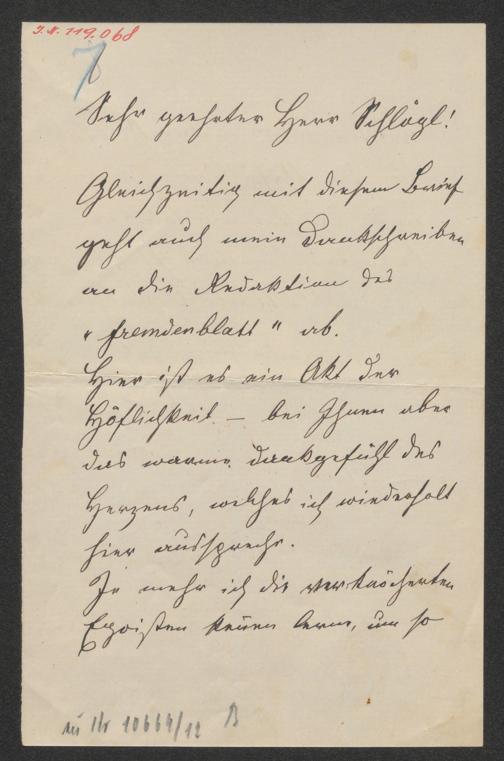 J.N. 119.068
7
Sehr geehrter Herr Schlögl!
Gleichzeitig mit diesem Brief
geht auch mein Dankschreiben
an die Redaktion des
"Fremdenblatt" ab.
Hier ist es ein Akt der
Höflichkeit – bei Ihnen aber
das warme Dankgefühl des
Herzens, welches ich wiederholt
hier ausspreche.
Je mehr ich die verknöcherten
Egoisten kennen lerne, um so
zu Nr 10664/12 B